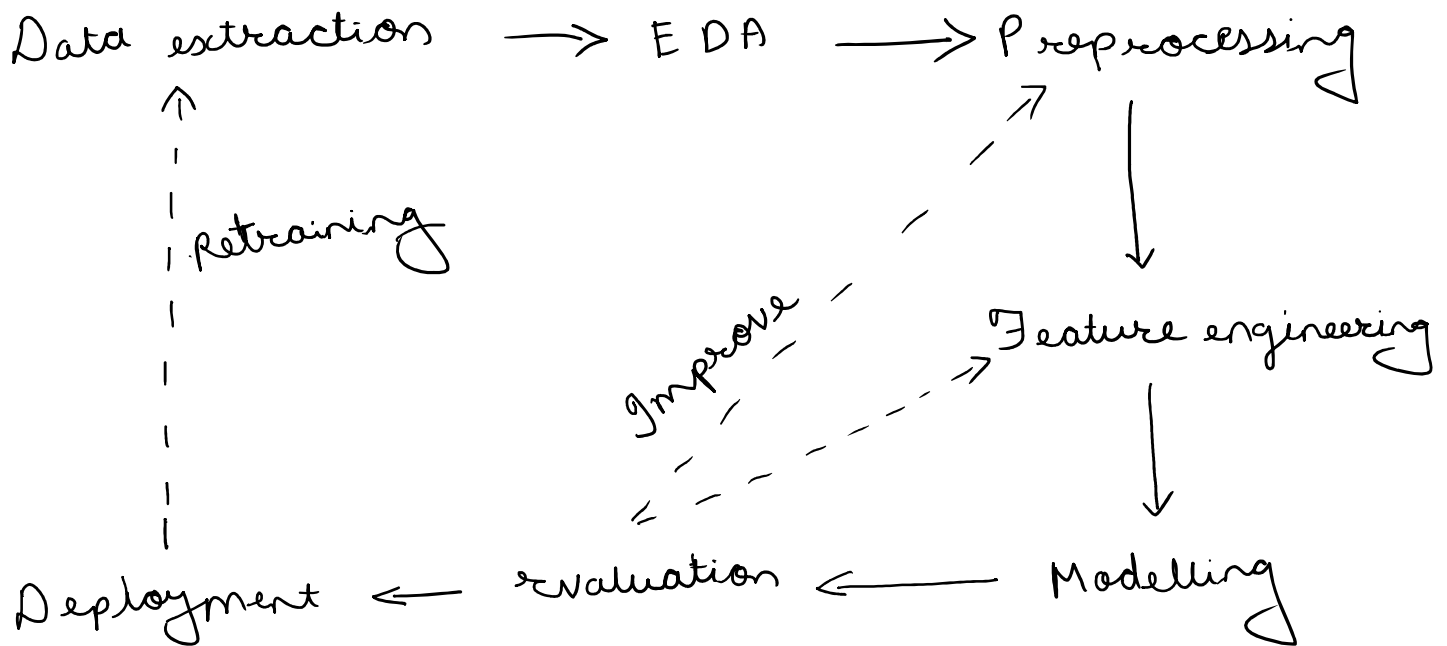 Data extraction
EDA
Preprocessing
Retraining
Improve
Feature engineering
Deployment
evaluation
Modelling